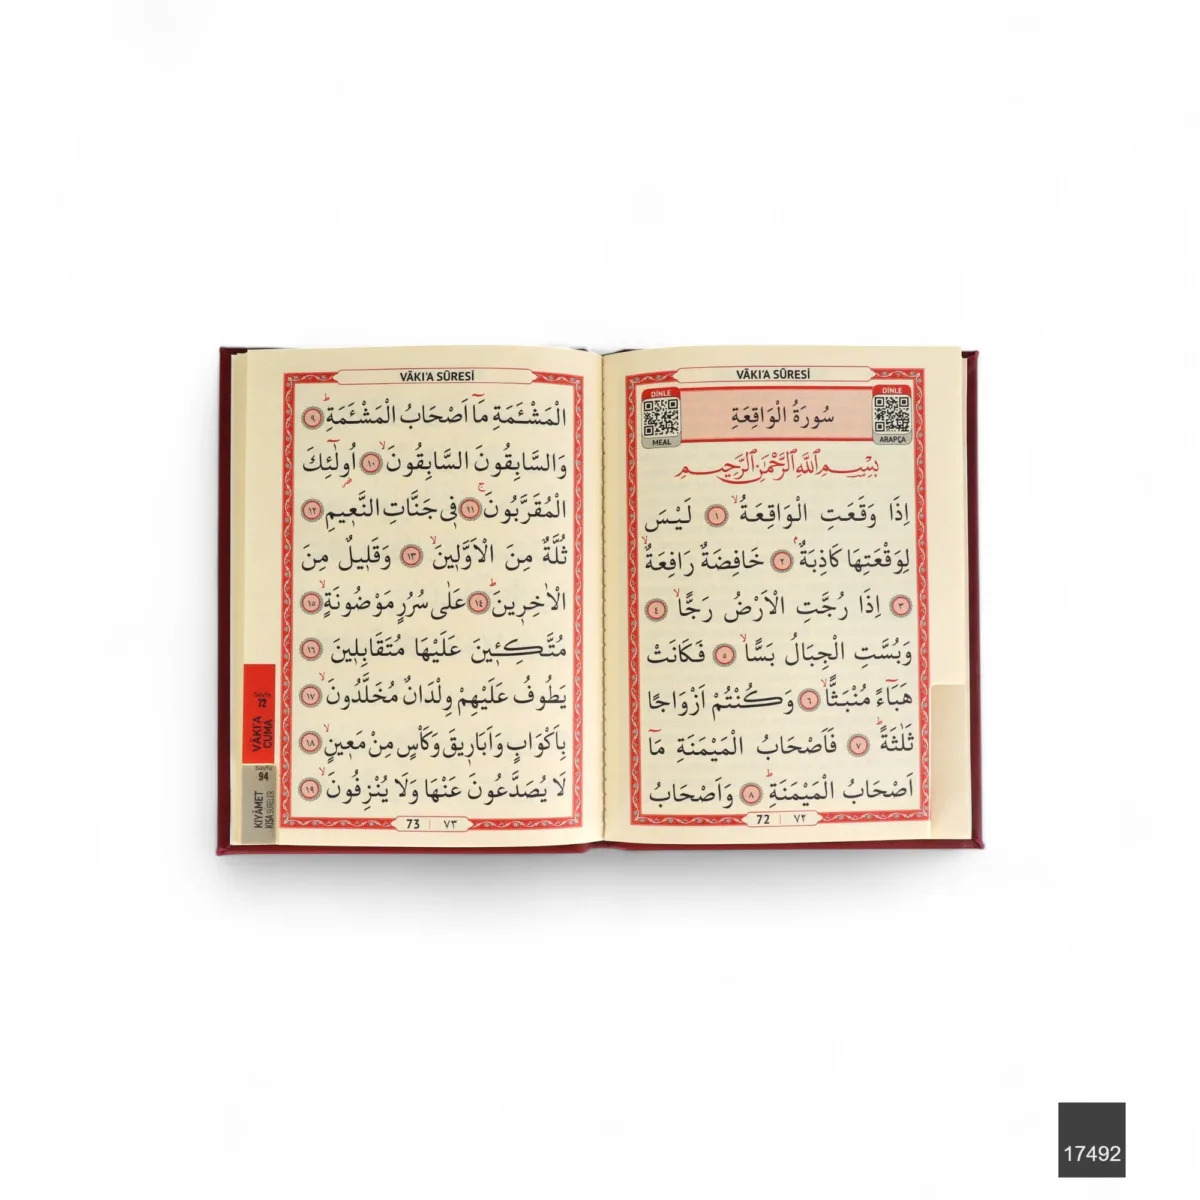 VÂKI'A SÛRESİ
DİNLE
MEAL
سُورَةُ الْوَاقِعَةِ
DİNLE
ARAPÇA
بِسْمِ اللّٰهِ الرَّحْمٰنِ الرَّحِيمِ
اِذَا وَقَعَتِ الْوَاقِعَةُۙ ﴿١﴾ لَيْسَ
لِوَقْعَتِهَا كَاذِبَةٌۢ ﴿٢﴾ خَافِضَةٌ رَافِعَةٌۙ
﴿٣﴾ اِذَا رُجَّتِ الْاَرْضُ رَجًّاۙ ﴿٤﴾
وَبُسَّتِ الْجِبَالُ بَسًّاۙ ﴿٥﴾ فَكَانَتْ
هَبَٓاءً مُنْبَثًّاۙ ﴿٦﴾ وَكُنْتُمْ اَزْوَاجًا
ثَلٰثَةًۜ ﴿٧﴾ فَاَصْحَابُ الْمَيْمَنَةِ مَٓا
اَصْحَابُ الْمَيْمَنَةِۜ ﴿٨﴾ وَاَصْحَابُ
72 | ٧٢
VÂKI'A SÛRESİ
الْمَشْـَٔمَةِ مَٓا اَصْحَابُ الْمَشْـَٔمَةِۜ ﴿٩﴾
وَالسَّابِقُونَ السَّابِقُونَۙ ﴿١٠﴾ اُولٰٓئِكَ
الْمُقَرَّبُونَۚ ﴿١١﴾ فِي جَنَّاتِ النَّعِيمِ ﴿١٢﴾
ثُلَّةٌ مِنَ الْاَوَّلِينَۙ ﴿١٣﴾ وَقَلِيلٌ مِنَ
الْاٰخِرِينَۜ ﴿١٤﴾ عَلٰى سُرُرٍ مَوْضُونَةٍۙ ﴿١٥﴾
مُتَّكِـِٔينَ عَلَيْهَا مُتَقَابِلِينَ ﴿١٦﴾
يَطُوفُ عَلَيْهِمْ وِلْدَانٌ مُخَلَّدُونَۙ ﴿١٧﴾
بِاَكْوَابٍ وَاَبَارِيقَ وَكَأْسٍ مِنْ مَعِينٍۙ ﴿١٨﴾
لَا يُصَدَّعُونَ عَنْهَا وَلَا يُنْزِفُونَۙ ﴿١٩﴾
73 | ٧٣
Sayfa
72
VÂKI'A
CUMA
Sayfa
94
KIYÂMET
KISA SÛRELER
17492